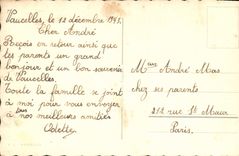 Vaucelles, le 12 décembre 1943.
Cher André
Reçois en retour ainsi que
tes parents un grand
bonjour et un bon souvenir
de Vaucelles.
Toute la famille se joint
à moi pour vous envoyer
à tous nos meilleurs amitiés
Odette.
Mons André Mas
chez ses parents
212 rue St Maur
Paris.